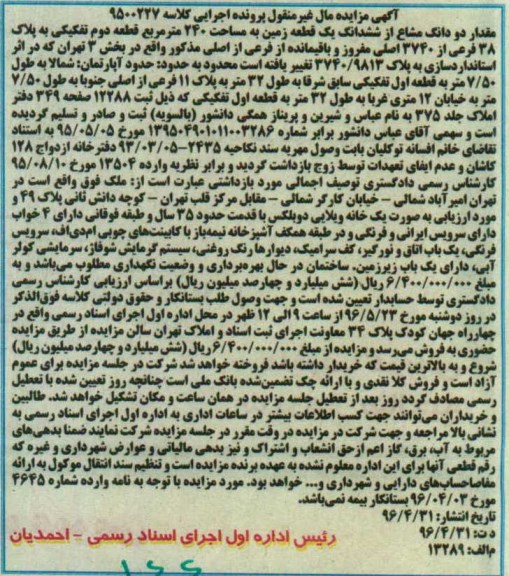 آگهی مزایده مال غیرمنقول پرونده اجرایی کلاسه ۹۵۰۰۲۲۷
مقدار دو دانگ مشاع از ششدانگ یک قطعه زمین به مساحت ۲۴۰ مترمربع قطعه دوم تفکیکی به پلاک
۳۸ فرعی از ۳۷۴۰ اصلی مفروز و باقیمانده از فرعی از اصلی مذکور واقع در بخش ۳ تهران که در اثر
استانداردسازی به پلاک ۳۷۴۰/۹۸۱۳ تغییر یافته است محدود به حدود: حدود آپارتمان: شمالا به طول
۷/۵۰ متر به قطعه اول تفکیکی سابق شرقا به طول ۳۲ متر به پلاک ۱۱ فرعی از اصلی جنوبا به طول ۷/۵۰
متر به خیابان ۱۲ متری غربا به طول ۳۲ متر به قطعه اول تفکیکی که ذیل ثبت ۱۲۲۸۸ صفحه ۳۴۹ دفتر
املاک جلد ۳۷۵ به نام عباس و شیرین و پریناز همگی دانشور (بالسویه) ثبت و صادر و تسلیم گردیده
است و سهمی آقای عباس دانشور برابر شماره ۱۳۹۵۰۴۹۰۱۰۱۱۰۰۳۲۸۶ مورخ ۹۵/۰۵/۰۵ به استناد
تقاضای خانم افسانه توکلیان بابت وصول مهریه سند نکاحیه ۲۴۳۵–۹۳/۰۳/۰۵ دفترخانه ازدواج ۱۲۸
کاشان و عدم ایفای تعهدات توسط زوج بازداشت گردید و برابر نظریه وارده ۱۳۵۰۴ مورخ ۹۵/۰۸/۱۰
کارشناس رسمی دادگستری توصیف اجمالی مورد بازداشتی عبارت است از: ملک فوق واقع است در
تهران امیرآباد شمالی – خیابان کارگر شمالی – مقابل مرکز قلب تهران – کوچه دانش ثانی پلاک ۴۹ و
مورد ارزیابی به صورت یک خانه ویلایی دوبلکس با قدمت حدود ۳۵ سال و طبقه فوقانی دارای ۴ خواب
دارای سرویس ایرانی و فرنگی و در طبقه همکف آشپزخانه نیمه‌باز با کابینت‌های چوبی ام‌دی‌اف، سرویس
فرنگی، یک باب اتاق و نورگیر، کف سرامیک، دیوارها رنگ روغنی، سیستم گرمایش شوفاژ، سرمایشی کولر
آبی، دارای یک باب زیرزمین. ساختمان در حال بهره‌برداری و وضعیت نگهداری مطلوب می‌باشد و به
مبلغ ۶/۴۰۰/۰۰۰/۰۰۰ ریال (شش میلیارد و چهارصد میلیون ریال) براساس ارزیابی کارشناس رسمی
دادگستری توسط حسابدار تعیین شده است و جهت وصول طلب بستانکار و حقوق دولتی کلاسه فوق‌الذکر
در روز دوشنبه مورخ ۹۶/۵/۲۳ از ساعت ۹ الی ۱۲ ظهر در محل اداره اول اجرای اسناد رسمی واقع در
چهارراه جهان کودک پلاک ۳۴ معاونت اجرای ثبت اسناد و املاک تهران سالن مزایده از طریق مزایده
حضوری به فروش می‌رسد و مزایده از مبلغ ۶/۴۰۰/۰۰۰/۰۰۰ ریال (شش میلیارد و چهارصد میلیون ریال)
شروع و به بالاترین قیمت که خریدار داشته باشد فروخته خواهد شد شرکت در جلسه مزایده برای عموم
آزاد است و فروش کلا نقدی و با ارائه چک تضمین‌شده بانک ملی است چنانچه روز تعیین شده با تعطیل
رسمی مصادف گردد روز بعد از تعطیل جلسه مزایده در همان ساعت و مکان تشکیل خواهد شد. طالبین
و خریداران می‌توانند جهت کسب اطلاعات بیشتر در ساعات اداری به اداره اول اجرای اسناد رسمی به
نشانی بالا مراجعه و جهت شرکت در مزایده در وقت مقرر در جلسه مزایده شرکت نمایند ضمنا بدهی‌های
مربوط به آب، برق، گاز اعم از حق انشعاب و اشتراک و نیز بدهی مالیاتی و عوارض شهرداری و غیره که
رقم قطعی آنها برای این اداره معلوم نشده به عهده برنده مزایده است و تنظیم سند انتقال موکول به ارائه
مفاصاحساب‌های دارایی و شهرداری و... خواهد بود. مورد مزایده با توجه به نامه وارده شماره ۴۶۴۵
مورخ ۹۶/۰۴/۰۳ بستانکار بیمه نمی‌باشد.
تاریخ انتشار: ۹۶/۴/۳۱
د ت: ۹۶/۴/۳۱
رئیس اداره اول اجرای اسناد رسمی – احمدیان
م‌الف: ۱۳۲۸۹